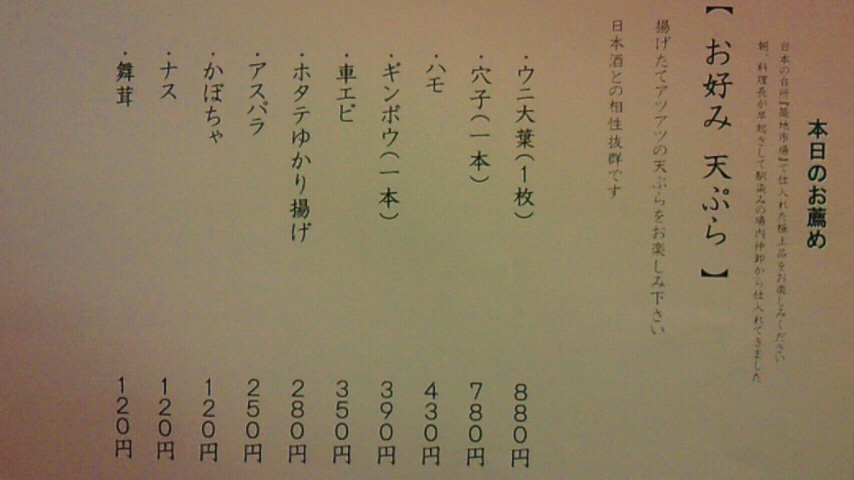 本日のお薦め
日本の台所『築地市場』で仕入れた極上品をお楽しみください
朝、料理長が早起きして馴染みの場内仲卸から仕入れてきました
【お好み 天ぷら】
揚げたてアツアツの天ぷらをお楽しみ下さい
日本酒との相性抜群です
・ウニ大葉(1枚) 880円
・穴子(一本) 780円
・ハモ 430円
・ギンポウ(一本) 390円
・車エビ 350円
・ホタテゆかり揚げ 280円
・アスパラ 250円
・かぼちゃ 120円
・ナス 120円
・舞茸 120円